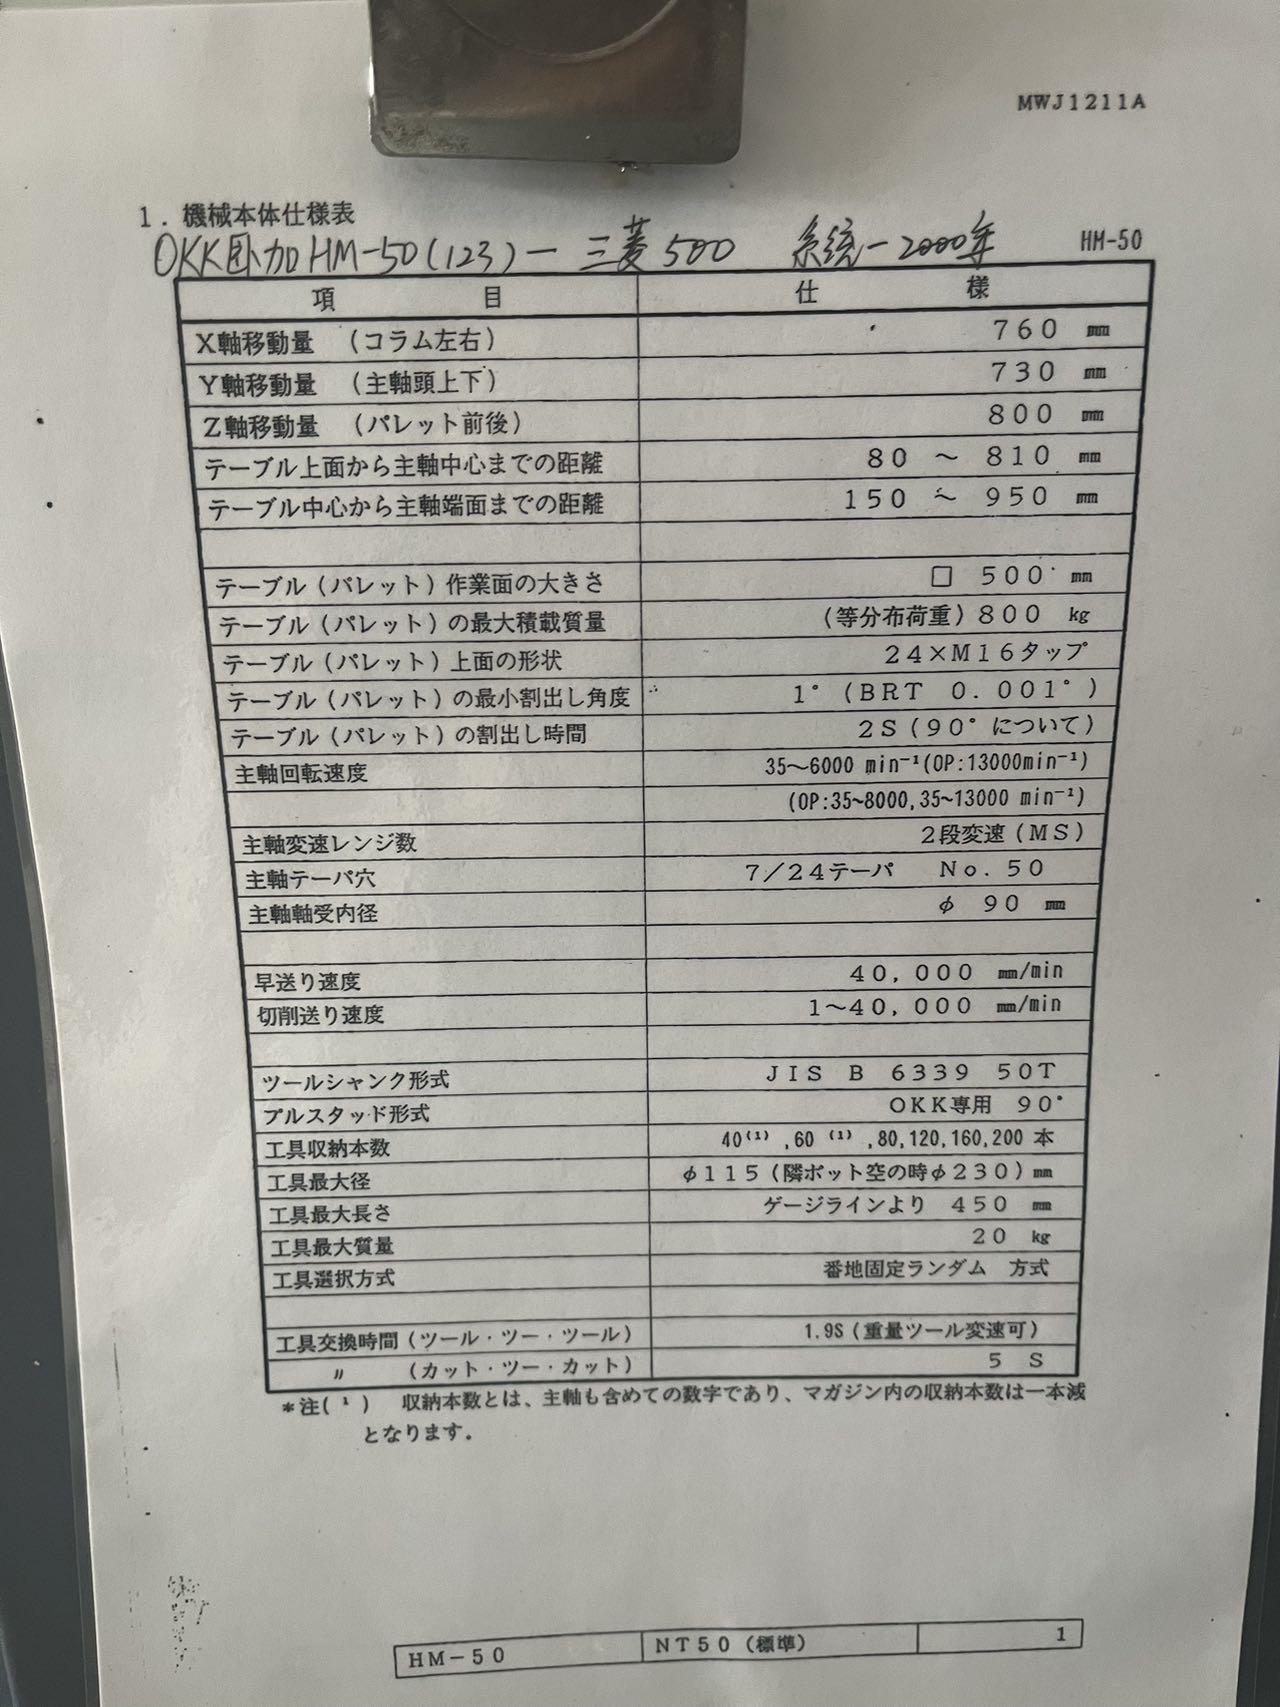 MWJ1211A
1．機械本体仕様表
OKK卧加HM-50(123)一三菱500 系統一2000年 HM-50
項 目 仕 様
X軸移動量 (コラム左右) 760 mm
Y軸移動量 (主軸頭上下) 730 mm
Z軸移動量 (パレット前後) 800 mm
テーブル上面から主軸中心までの距離 80 〜 810 mm
テーブル中心から主軸端面までの距離 150 〜 950 mm
テーブル(パレット)作業面の大きさ □ 500 mm
テーブル(パレット)の最大積載質量 (等分布荷重)800 kg
テーブル(パレット)上面の形状 24×M16タップ
テーブル(パレット)の最小割出し角度 1°(BRT 0.001°)
テーブル(パレット)の割出し時間 2S(90°について)
主軸回転速度 35〜6000 min⁻¹(OP:13000min⁻¹)
(OP:35~8000,35~13000 min⁻¹)
主軸変速レンジ数 2段変速(MS)
主軸テーパ穴 7／24テーパ No.50
主軸軸受内径 φ 90 mm
早送り速度 40,000 mm/min
切削送り速度 1〜40,000 mm/min
ツールシャンク形式 JIS B 6339 50T
プルスタッド形式 OKK専用 90°
工具収納本数 40⁽¹⁾,60⁽¹⁾,80,120,160,200 本
工具最大径 φ115(隣ポット空の時φ230)mm
工具最大長さ ゲージラインより 450 mm
工具最大質量 20 kg
工具選択方式 番地固定ランダム 方式
工具交換時間(ツール・ツー・ツール) 1.9S(重量ツール変速可)
〃 (カット・ツー・カット) 5 S
＊注(¹) 収納本数とは、主軸も含めての数字であり、マガジン内の収納本数は一本減
となります．
HM－50 NT50(標準) 1